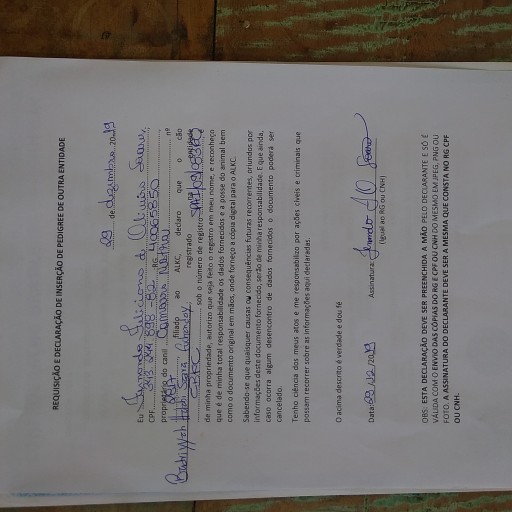 REQUISIÇÃO E DECLARAÇÃO DE INSERÇÃO DE PEDIGREE DE OUTRA ENTIDADE
29 de dezembro 2019
Eu Fernando Feliciano de Oliveira Soares,
CPF RG
proprietário do canil nº
filiado ao ALKC, declaro que o cão
registrado na entidade
CBKC sob o número de registro e
de minha propriedade, autorizo que seja feito o registro em meu nome, e reconheço
que é de minha total responsabilidade os dados fornecidos e a posse do animal bem
como o documento original em mãos, onde forneço a cópia digital para o ALKC.
Sabendo-se que quaisquer causas ou consequências futuras recorrentes, oriundos por
informações deste documento fornecido, serão de minha responsabilidade. E que ainda,
caso ocorra algum desencontro de dados fornecidos o documento poderá ser
cancelado.
Tenho ciência dos meus atos e me responsabilizo por ações cíveis e criminais que
possam recorrer sobre as informações aqui declaradas.
O acima descrito é verdade e dou fé
Data: 29/12/2019 Assinatura:
(Igual ao RG ou CNH)
OBS: ESTA DECLARAÇÃO DEVE SER PREENCHIDA A MÃO PELO DECLARANTE E SÓ É
VÁLIDA COM O ENVIO DAS COPIAS DO RG E CPF OU CNH DO MESMO EM JPEG, PNG OU
FOTO. A ASSINATURA DO DECLARANTE DEVE SER A MESMA QUE CONSTA NO RG CPF
OU CNH.